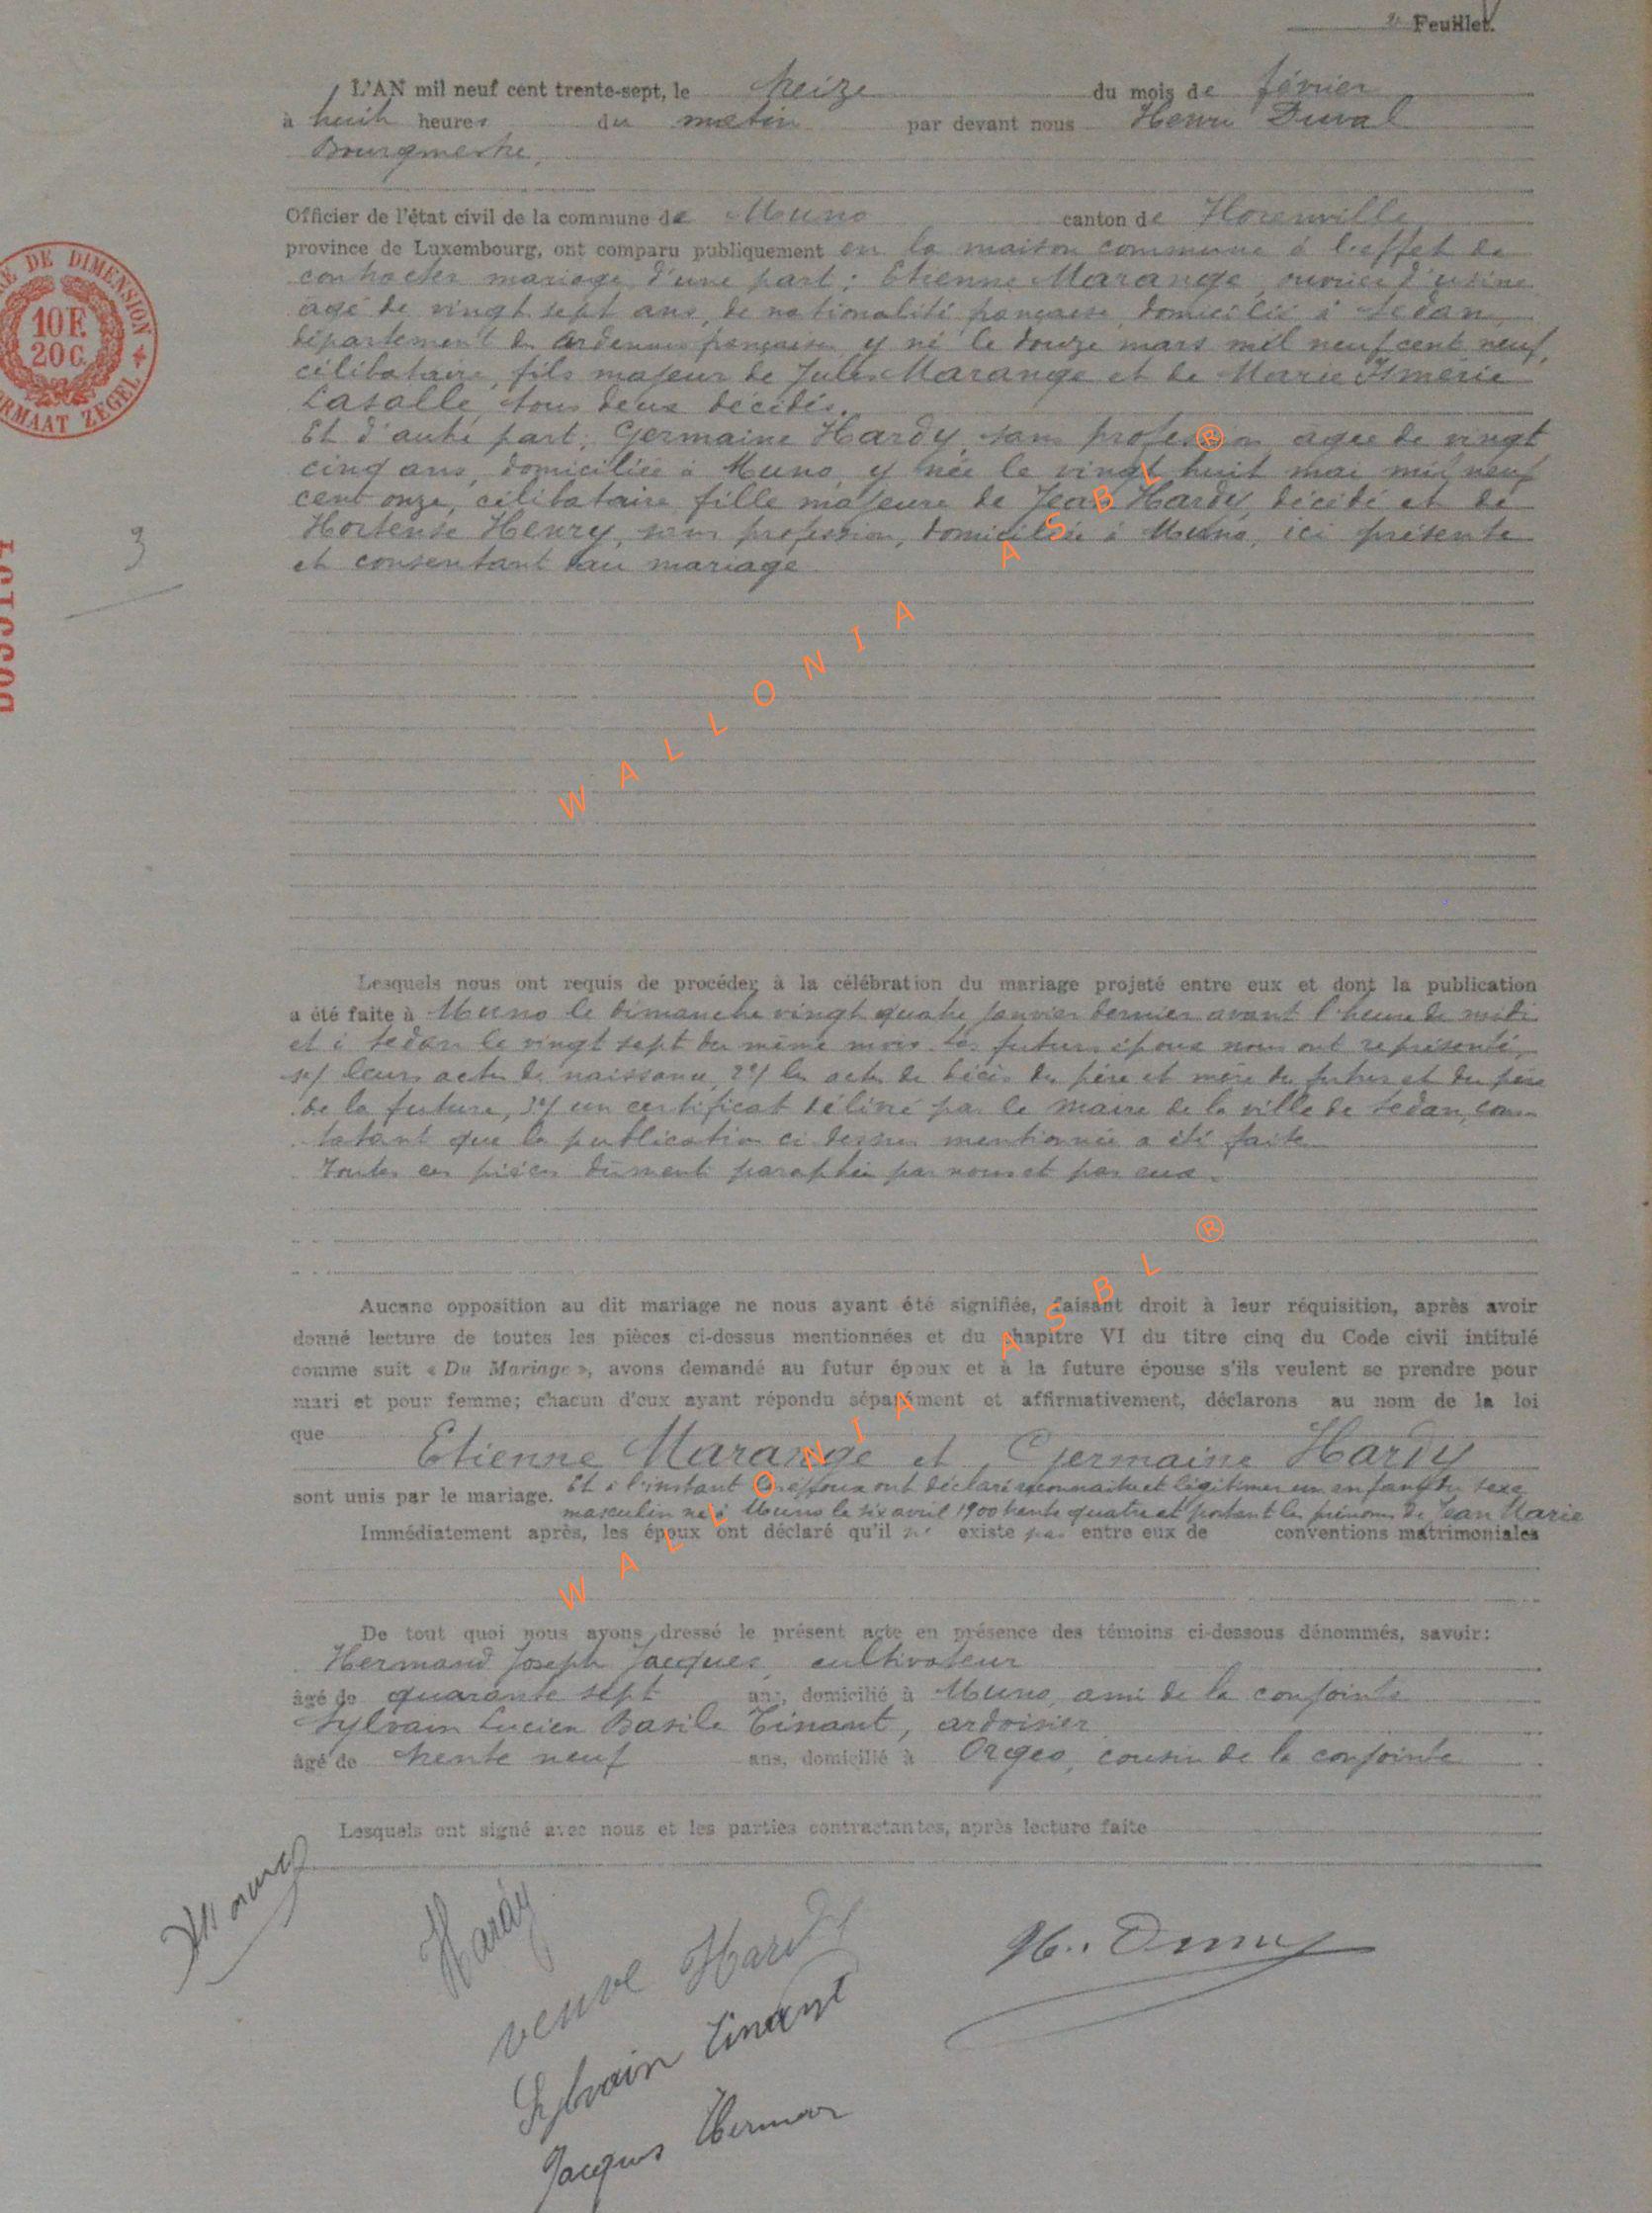 Feuillet.
L'AN mil neuf cent trente-sept, le treize du mois de février
à huit heures du matin par devant nous Henri Duval
Bourgmestre,
Officier de l'état civil de la commune de Muno canton de Florenville
province de Luxembourg, ont comparu publiquement en la maison commune à l'effet de
contracter mariage d'une part : Etienne Marange, ouvrier d'usine
âgé de vingt sept ans, de nationalité française, domicilié à Sedan,
département des Ardennes françaises y né le douze mars mil neuf cent neuf,
célibataire, fils majeur de Jules Marange et de Marie Ismérie
Lasalle, tous deux décédés.
Et d'autre part, Germaine Hardy, sans profession âgée de vingt
cinq ans, domiciliée à Muno, y née le vingt huit mai mil neuf
cent onze, célibataire fille majeure de Jean Hardy, décédé et de
Hortense Henry, sans profession, domiciliée à Muno, ici présente
et consentant au mariage
3
10 F.
20 C.
RE DE DIMENSION
ORMAAT ZEGEL
WALLONIA ASBL ®
Lesquels nous ont requis de procéder à la célébration du mariage projeté entre eux et dont la publication
a été faite à Muno le dimanche vingt quatre janvier dernier avant l'heure de midi
et à Sedan le vingt sept du même mois. Les futurs époux nous ont représenté,
1°/ leurs actes de naissance, 2°/ les actes de décès des père et mère du futur et du père
de la future, 3°/ un certificat délivré par le Maire de la ville de Sedan, cons
tatant que la publication ci dessus mentionnée a été faite
Toutes ces pièces dûment paraphées par nous et par eux.
Aucune opposition au dit mariage ne nous ayant été signifiée, faisant droit à leur réquisition, après avoir
donné lecture de toutes les pièces ci-dessus mentionnées et du chapitre VI du titre cinq du Code civil intitulé
comme suit « Du Mariage », avons demandé au futur époux et à la future épouse s'ils veulent se prendre pour
mari et pour femme; chacun d'eux ayant répondu séparément et affirmativement, déclarons au nom de la loi
que
Etienne Marange et Germaine Hardy
sont unis par le mariage. Et à l'instant les époux ont déclaré reconnaître et légitimer un enfant du sexe
masculin né à Muno le six avril 1900 trente quatre et portant les prénoms de Jean Marie
Immédiatement après, les époux ont déclaré qu'il n' existe pas entre eux de conventions matrimoniales
WALLONIA ASBL ®
De tout quoi nous avons dressé le présent acte en présence des témoins ci-dessous dénommés, savoir:
Hermand Joseph Jacques, cultivateur
âgé de quarante sept ans, domicilié à Muno, ami de la conjointe
Sylvain Lucien Basile Tinant, ardoisier
âgé de trente neuf ans, domicilié à Orgeo, cousin de la conjointe
Lesquels ont signé avec nous et les parties contractantes, après lecture faite
Hardy
veuve Hardy
Sylvain Tinant
Jacques